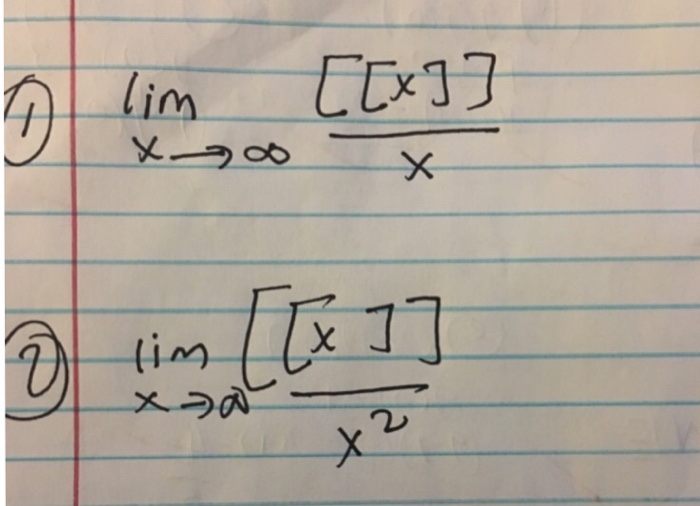 ① lim x→∞ [[x]] / x
② lim x→∞ [[x]] / x²